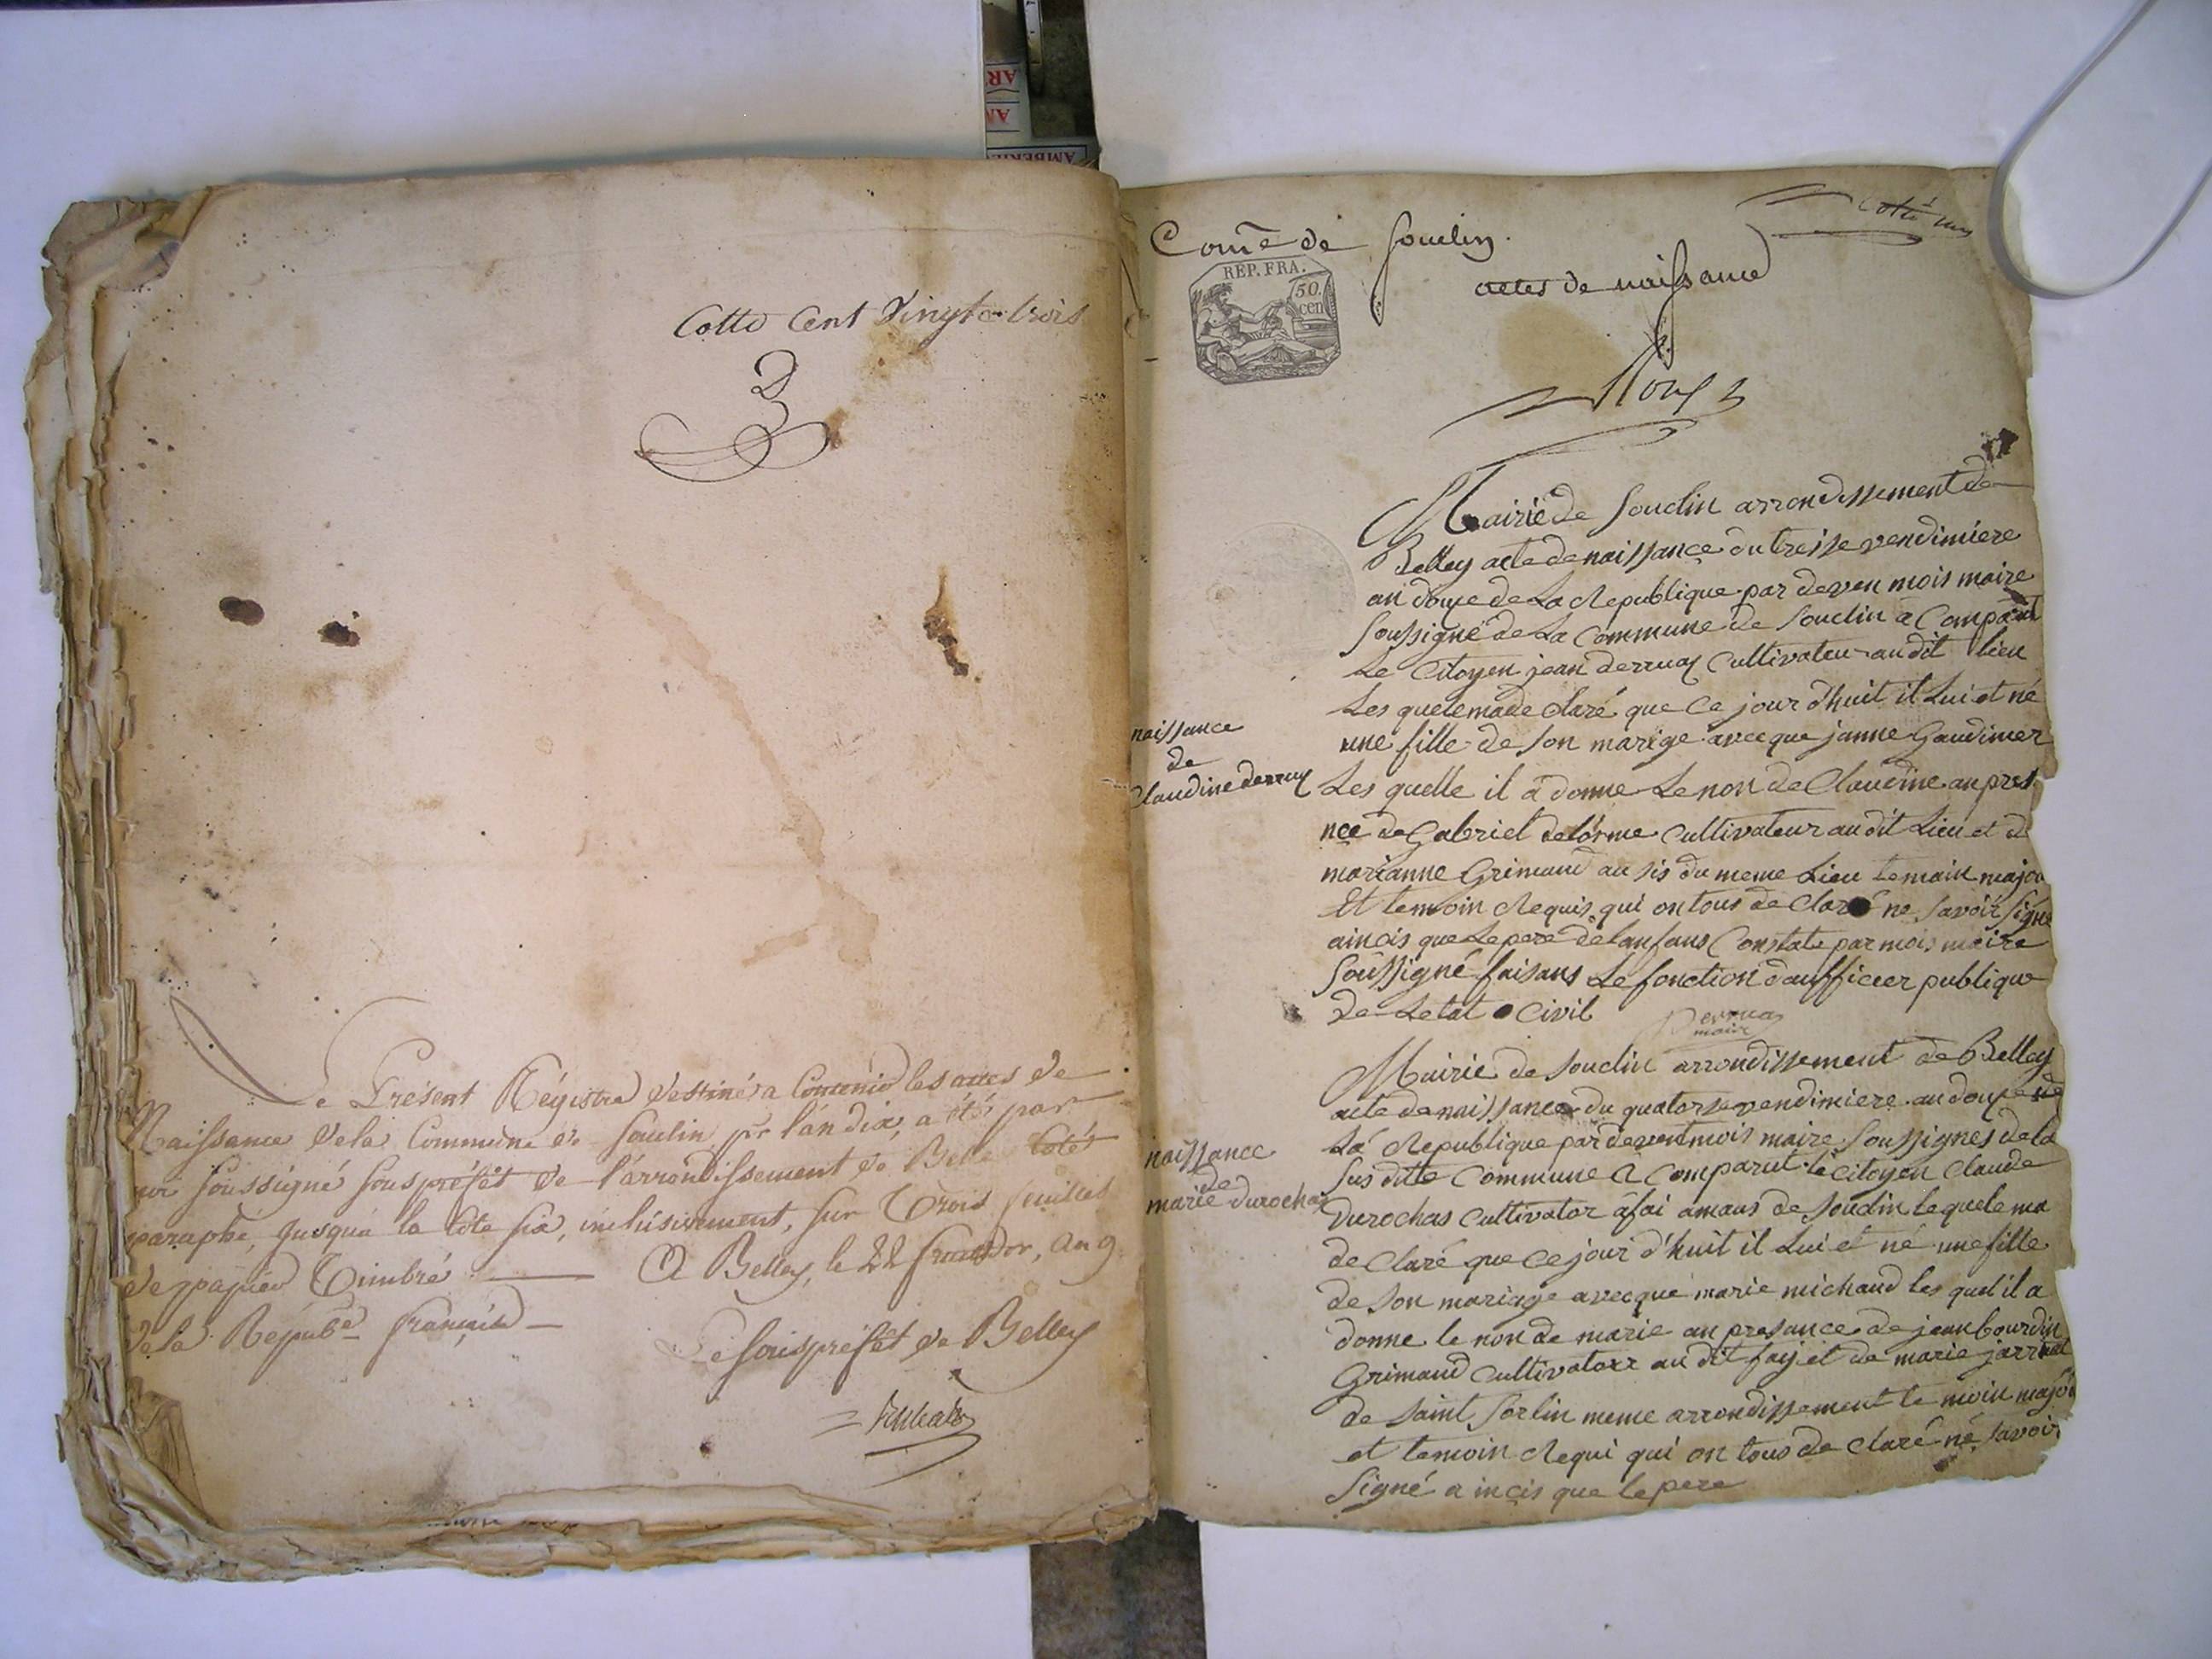 Cotte Cent Vingt trois
Le Présent Régistre destiné a Contenir les actes de
Naissance de la Commune de Souclin pr l'an dix, a été par
nous soussigné souspréfet de l'arrondissement de Belley Coté
paraphé, jusqu'a la Cote six, inclusivement, sur Trois feuilles
de papier Timbré
A Belley, le 22 fructidor, an 9
de la Répube française
Le souspréfet de Belley
Come de Souclin
Coté un
actes de naissance
REP. FRA.
50.
cen
Mairie de Souclin arrondissement de
Belley acte de naissance du treise vendimiere
an douze de La Republique par deven mois maire
soussigné de La Commune de Souclin a Comparut
Le Citoyen jean derruaz Cultivateur au dit lieu
Les quele ma de Claré que Ce jour d'huit il Lui et né
une fille de son marige avecque janne Gaudimer
naissance
de
Claudine derruaz
Les quelle il a donne Le non de Claudine an pres
nce de Gabriel delorme Cultivateur au dit Lieu et de
marianne Grimaud au sis du meme Lieu temain majou
Et temoin Requis qui on tous de Claré ne savoir signe
aincis que Le pere de lanfans Constate par mois maire
soussigné faisans Le fonction daufficier publique
de Letat Civil
Derruaz
maire
Mairie de Souclin arrondissement de Belley
acte de naissance du quatorse vendimiere an douze de
La Republique par devent mois maire soussignes de la
naissance
de
marie durochas
sus ditte Commune a Comparut le Citoyen Claude
durochas Cultivator a fai amaus de Souclin le quele ma
de Claré que Ce jour d'huit il Lui et né une fille
de son mariage avecque marie michaud les quel il a
donne le non de marie an presance de jean bourdin
Grimaud Cultivatoxr au dit fay et de marie
de saint Sorlin meme arrondissement te moin majou
et temoin Requi qui on tous de Claré né savoir
signé a incis que le pere